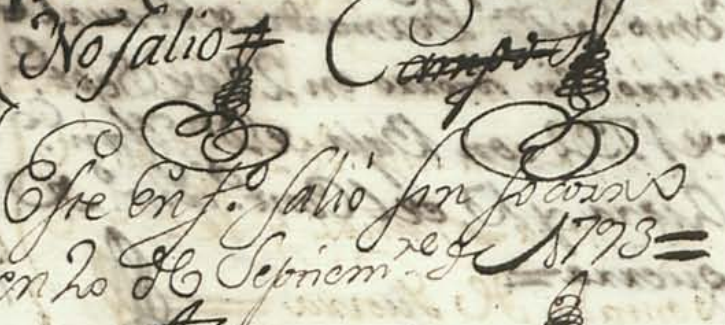 No salio Campo
Este Enf.º salió sin socorro
en 20 de Septiem.re de 1793=